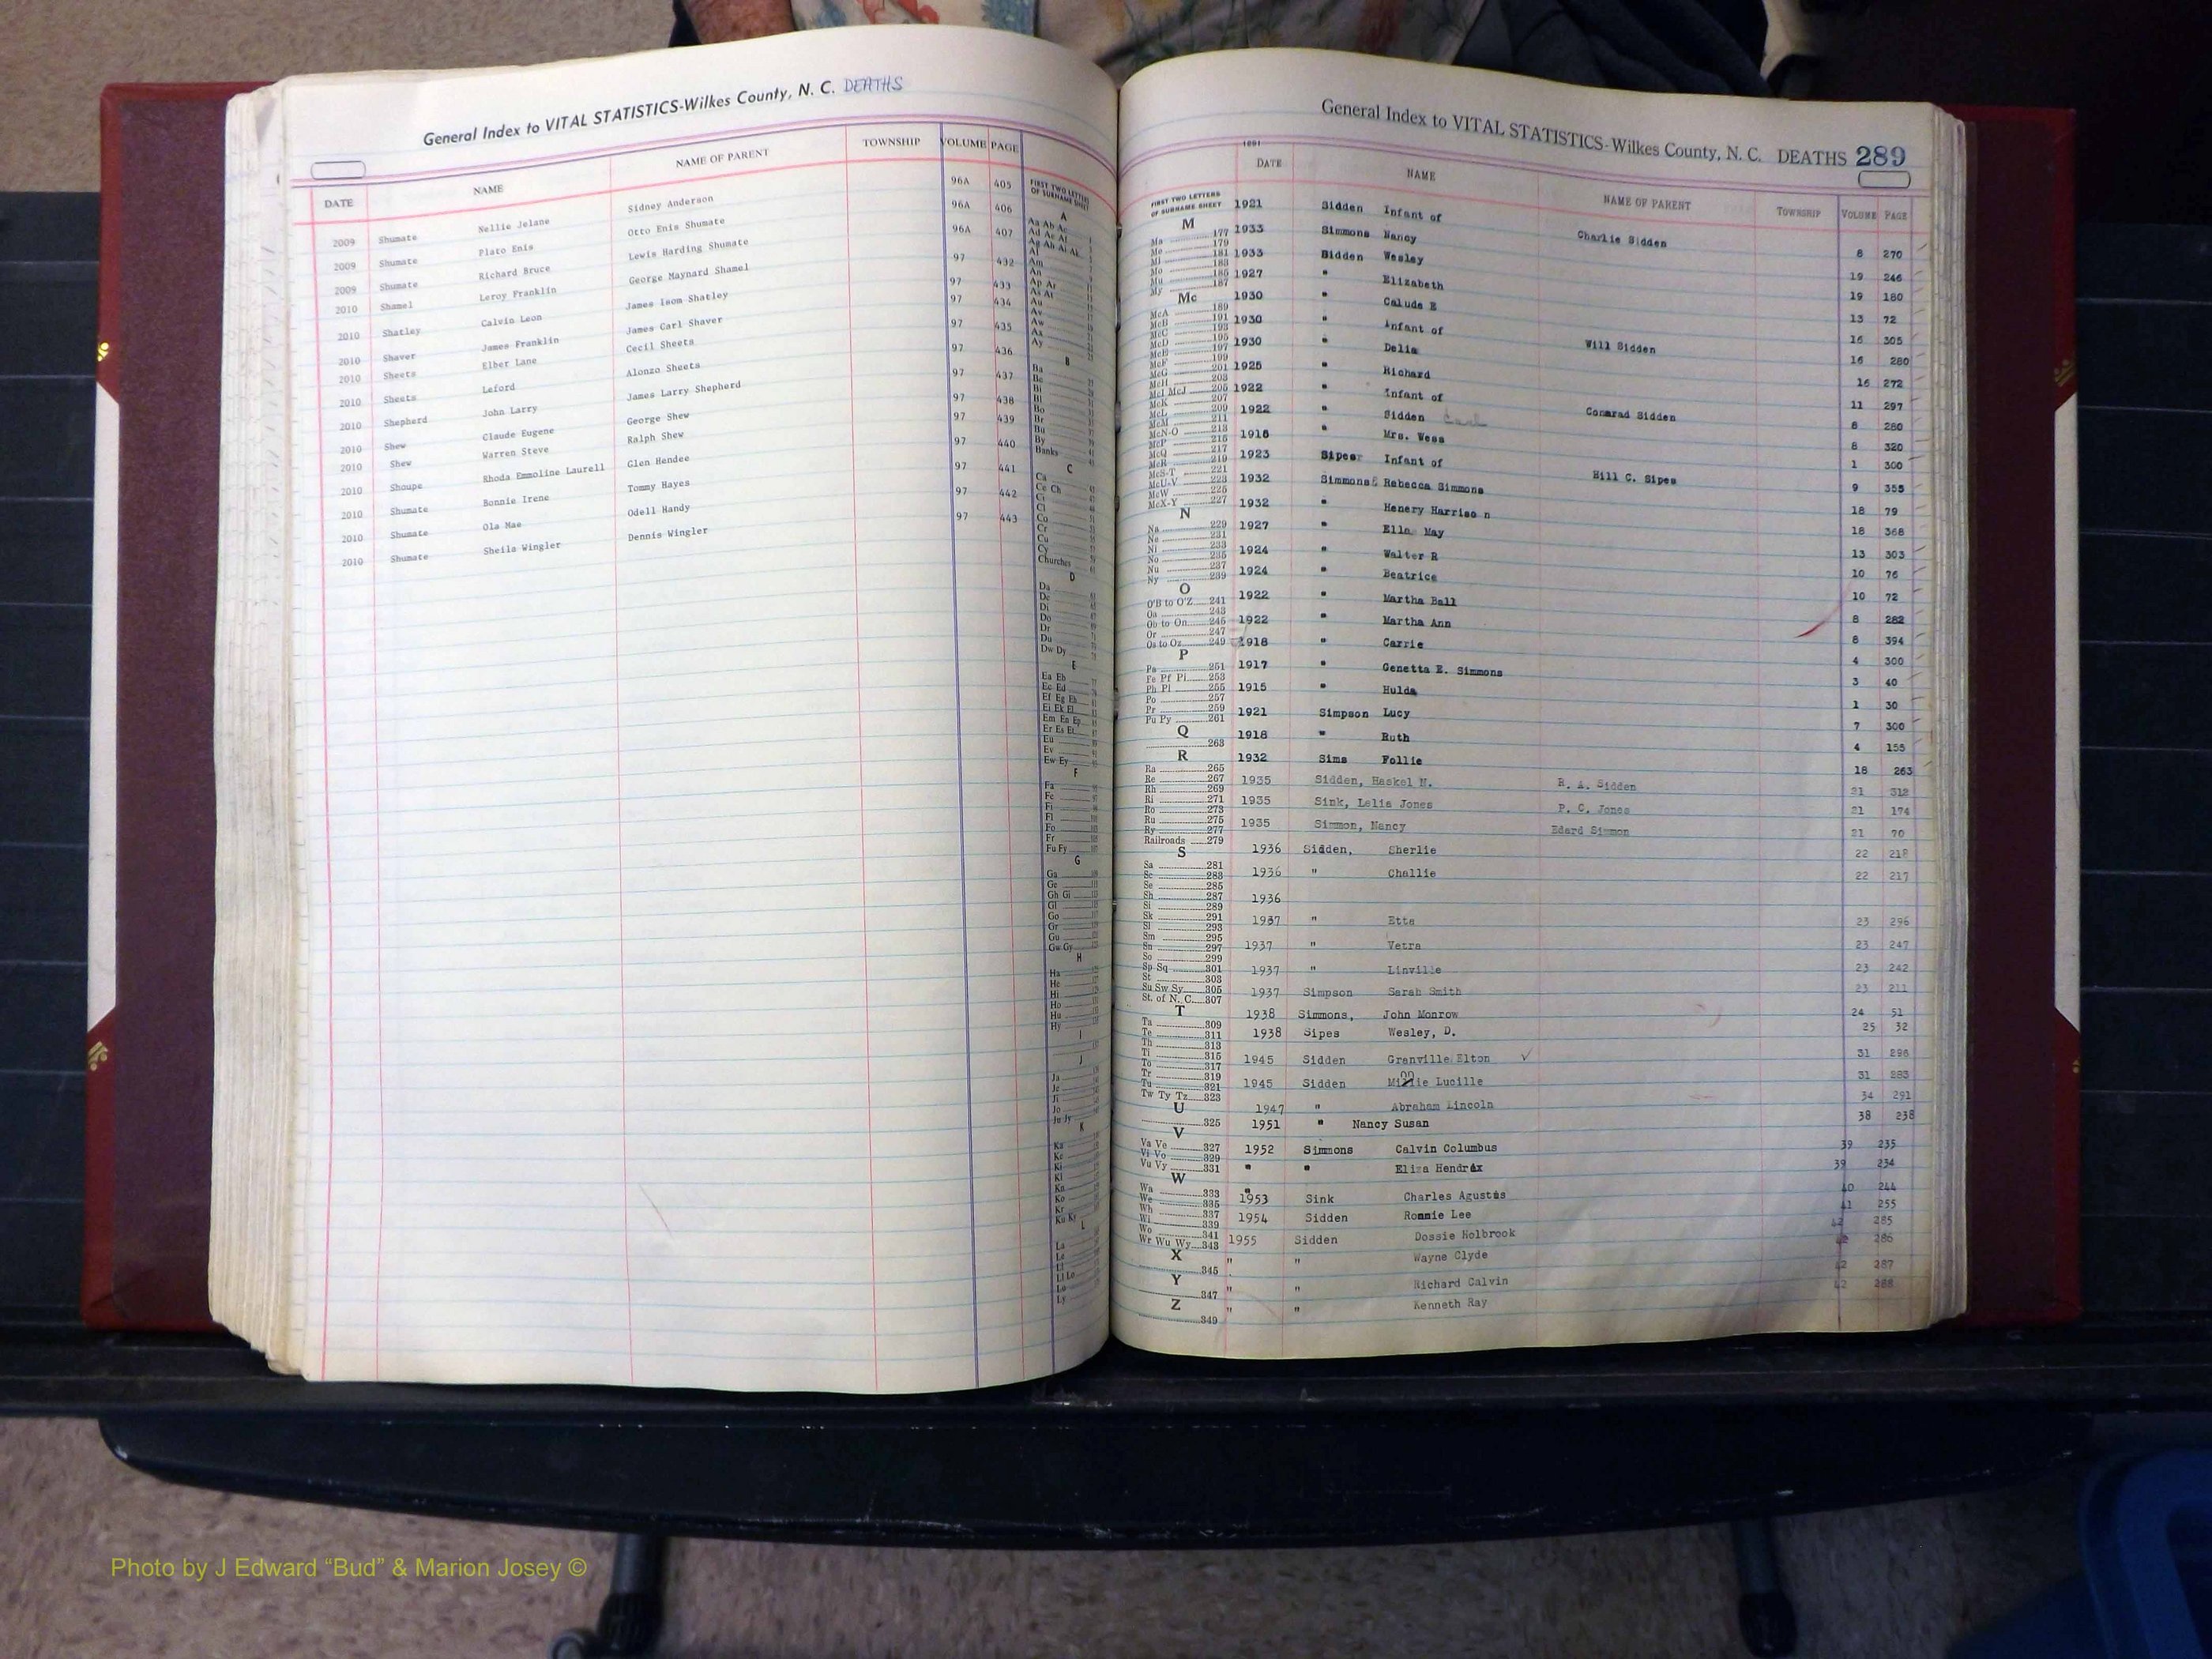 General Index to VITAL STATISTICS-Wilkes County, N. C. DEATHS
DATE NAME NAME OF PARENT TOWNSHIP VOLUME PAGE
2009 Shumate Nellie Jelane Sidney Anderson 96A 405
2009 Shumate Plato Enis Otto Enis Shumate 96A 406
2009 Shumate Richard Bruce Lewis Harding Shumate 96A 407
2010 Shamel Leroy Franklin George Maynard Shamel 97 432
2010 Shatley Calvin Leon James Isom Shatley 97 433
2010 Shaver James Franklin James Carl Shaver 97 434
2010 Sheets Elber Lane Cecil Sheets 97 435
2010 Sheets Leford Alonzo Sheets 97 436
2010 Shepherd John Larry James Larry Shepherd 97 437
2010 Shew Claude Eugene George Shew 97 438
2010 Shew Warren Steve Ralph Shew 97 439
2010 Shoupe Rhoda Emmoline Laurell Glen Hendee 97 440
2010 Shumate Bonnie Irene Tommy Hayes 97 441
2010 Shumate Ola Mae Odell Handy 97 442
2010 Shumate Sheila Wingler Dennis Wingler 97 443
FIRST TWO LETTERS
OF SURNAME SHEET
A
Aa Ab Ac
Ad Ae Af
Ag Ah Ai Ak
Al
Am
An
Ap Ar
As At
Au
Av
Aw
Ax
Ay
B
Ba
Be
Bi
Bl
Bo
Br
Bu
By
Banks
C
Ca
Ce Ch
Ci
Cl
Co
Cr
Cu
Cy
Churches
D
Da
De
Di
Do
Dr
Du
Dw Dy
E
Ea Eb
Ec Ed
Ef Eg Eh
Ei Ek El
Em En Ep
Er Es Et
Eu
Ev
Ew Ey
F
Fa
Fe
Fi
Fl
Fo
Fr
Fu Fy
G
Ga
Ge
Gh Gi
Gl
Go
Gr
Gu
Gw Gy
H
Ha
He
Hi
Ho
Hu
Hy
I
J
Ja
Je
Ji
Jo
Ju Jy
K
Ka
Ke
Ki
Kl
Kn
Ko
Kr
Ku Ky
L
La
Le
Li
Ll Lo
Lu
Ly
General Index to VITAL STATISTICS-Wilkes County, N. C. DEATHS 289
DATE NAME NAME OF PARENT TOWNSHIP VOLUME PAGE
FIRST TWO LETTERS
OF SURNAME SHEET
M
Ma 177
Me 179
Mi 181
Mo 183
Mu 185
My 187
Mc
McA 189
McB 191
McC 193
McD 195
McE 197
McF 199
McG 201
McH 203
McI McJ 205
McK 207
McL 209
McM 211
McN-O 213
McP 215
McQ 217
McR 219
McS-T 221
McU-V 223
McW 225
McX-Y 227
N
Na 229
Ne 231
Ni 233
No 235
Nu 237
Ny 239
O
O'B to O'Z 241
Oa 243
Ob to On 245
Or 247
Os to Oz 249
P
Pa 251
Pe Pf Pi 253
Ph Pl 255
Po 257
Pr 259
Pu Py 261
Q
263
R
Ra 265
Re 267
Rh 269
Ri 271
Ro 273
Ru 275
Ry 277
Railroads 279
S
Sa 281
Sc 283
Se 285
Sh 287
Si 289
Sk 291
Sl 293
Sm 295
Sn 297
So 299
Sp Sq 301
St 303
Su Sw Sy 305
St. of N. C. 307
T
Ta 309
Te 311
Th 313
Ti 315
To 317
Tr 319
Tu 321
Tw Ty Tz 323
U
325
V
Va Ve 327
Vi Vo 329
Vu Vy 331
W
Wa 333
We 335
Wh 337
Wi 339
Wo 341
Wr Wu Wy 343
X
345
Y
347
Z
349
1921 Sidden Infant of Charlie Sidden 8 270
1933 Simmons Nancy 19 246
1933 Sidden Wesley 19 180
1927 " Elizabeth 13 72
1930 " Calude E 16 305
1930 " Infant of Will Sidden 16 280
1930 " Delia 16 272
1925 " Richard 11 297
1922 " Infant of Conarad Sidden 8 280
1922 " Sidden 8 320
1916 " Mrs. Wess 1 300
1923 Sipes Infant of Hill C. Sipes 9 355
1932 Simmons Rebecca Simmons 18 79
1932 " Henery Harriso n 18 368
1927 " Ella May 13 303
1924 " Walter R 10 76
1924 " Beatrice 10 72
1922 " Martha Ball 8 282
1922 " Martha Ann 8 394
1918 " Carrie 4 300
1917 " Genetta E. Simmons 3 40
1915 " Hulda 1 30
1921 Simpson Lucy 7 300
1918 " Ruth 4 155
1932 Sims Follie 18 263
1935 Sidden, Haskel N. R. A. Sidden 21 312
1935 Sink, Lelia Jones P. C. Jones 21 174
1935 Simmon, Nancy Edard Simmon 21 70
1936 Sidden, Sherlie 22 218
1936 " Challie 22 217
1936
1937 " Etta 23 296
1937 " Vetra 23 247
1937 " Linville 23 242
1937 Simpson Sarah Smith 23 211
1938 Simmons, John Monrow 24 51
1938 Sipes Wesley, D. 25 32
1945 Sidden Granville Elton ✓ 31 296
1945 Sidden Minnie Lucille 31 283
1947 " Abraham Lincoln 34 291
1951 " Nancy Susan 38 238
1952 Simmons Calvin Columbus 39 235
" " Eliza Hendrix 39 234
1953 Sink Charles Agustus 40 244
1954 Sidden Rommie Lee 41 255
1955 Sidden Dossie Holbrook 42 285
" " Wayne Clyde 42 286
" " Richard Calvin 42 287
" " Kenneth Ray 42 288
Photo by J Edward “Bud” & Marion Josey ©